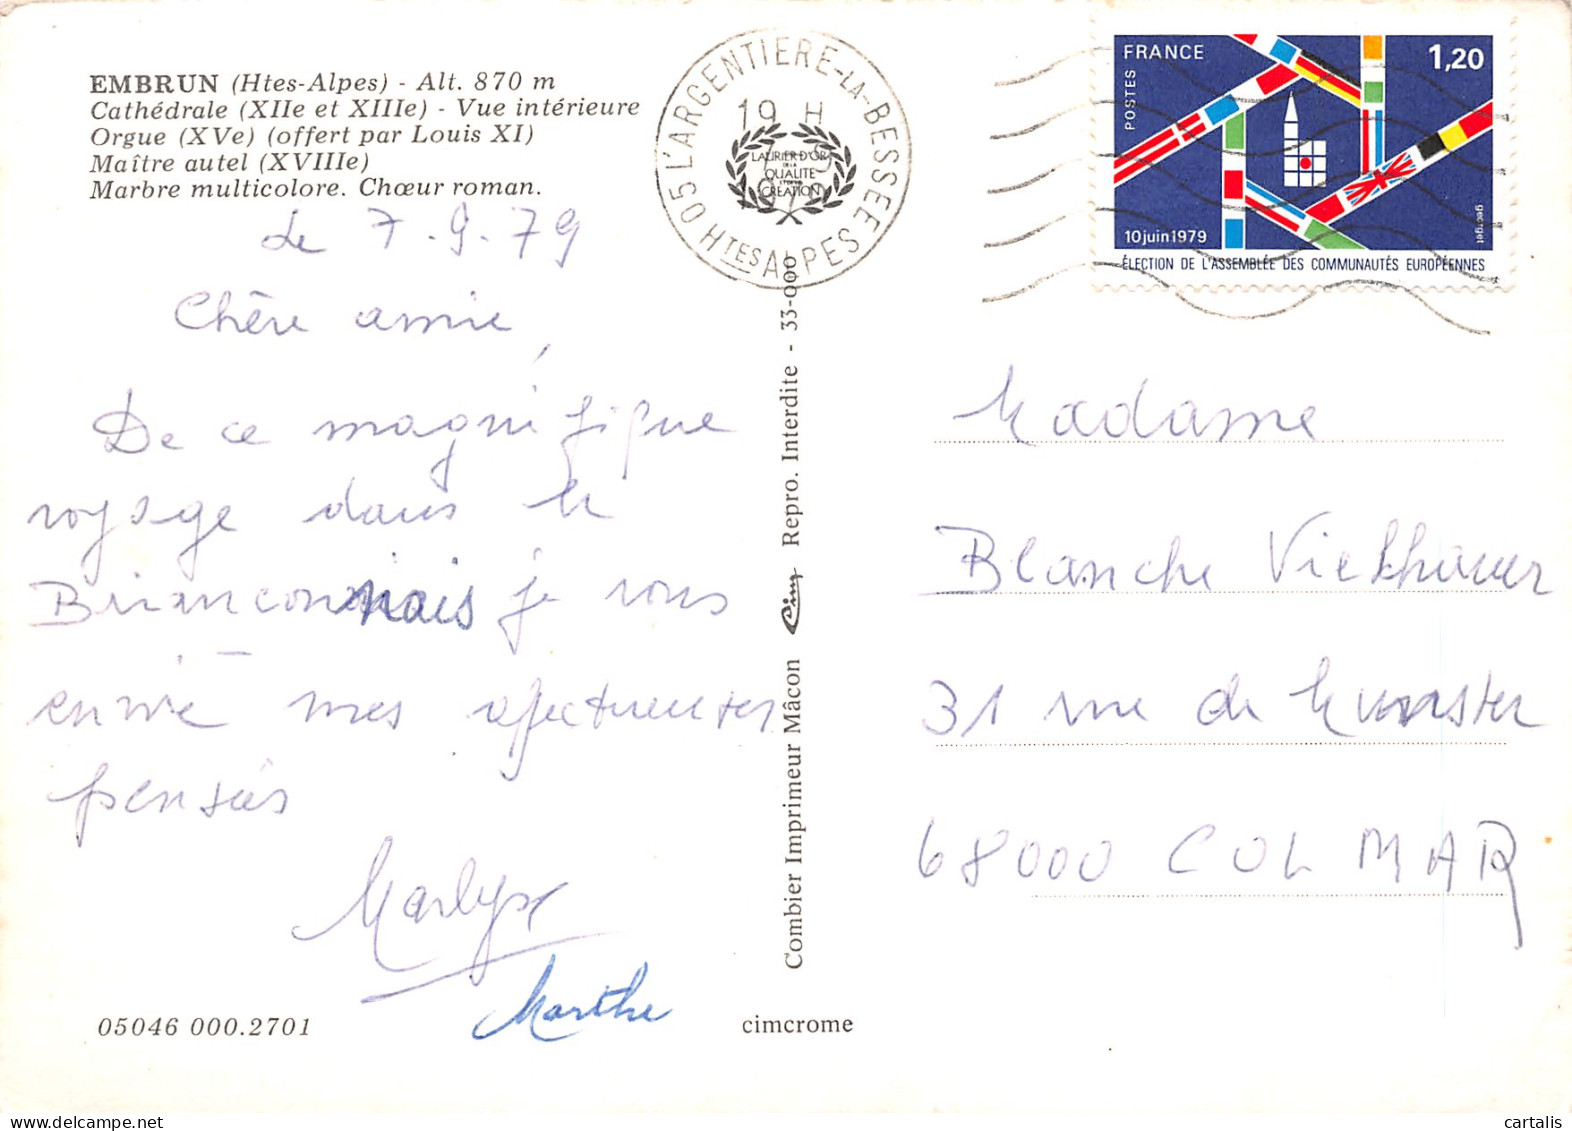 EMBRUN (Htes-Alpes) - Alt. 870 m
Cathédrale (XIIe et XIIIe) - Vue intérieure
Orgue (XVe) (offert par Louis XI)
Maître autel (XVIIIe)
Marbre multicolore. Chœur roman.
le 7.9.79
Chère amie,
De ce magnifique
voyage dans le
Brianconnais je vous
envoie mes affectueuses
pensées
Marlyse
Marthe
05046 000.2701
cimcrome
Combier Imprimeur Mâcon Cim Repro. Interdite - 33-000
05 L'ARGENTIERE-LA-BESSEE
HTES ALPES
19 H
LAURIER D'OR
DE LA
QUALITE
CREATION
FRANCE
1,20
POSTES
10 juin 1979
georget
ÉLECTION DE L'ASSEMBLÉE DES COMMUNAUTÉS EUROPÉENNES
Madame
Blanche
31 rue de Munster
68000 COLMAR
delcampe.net
cartalis